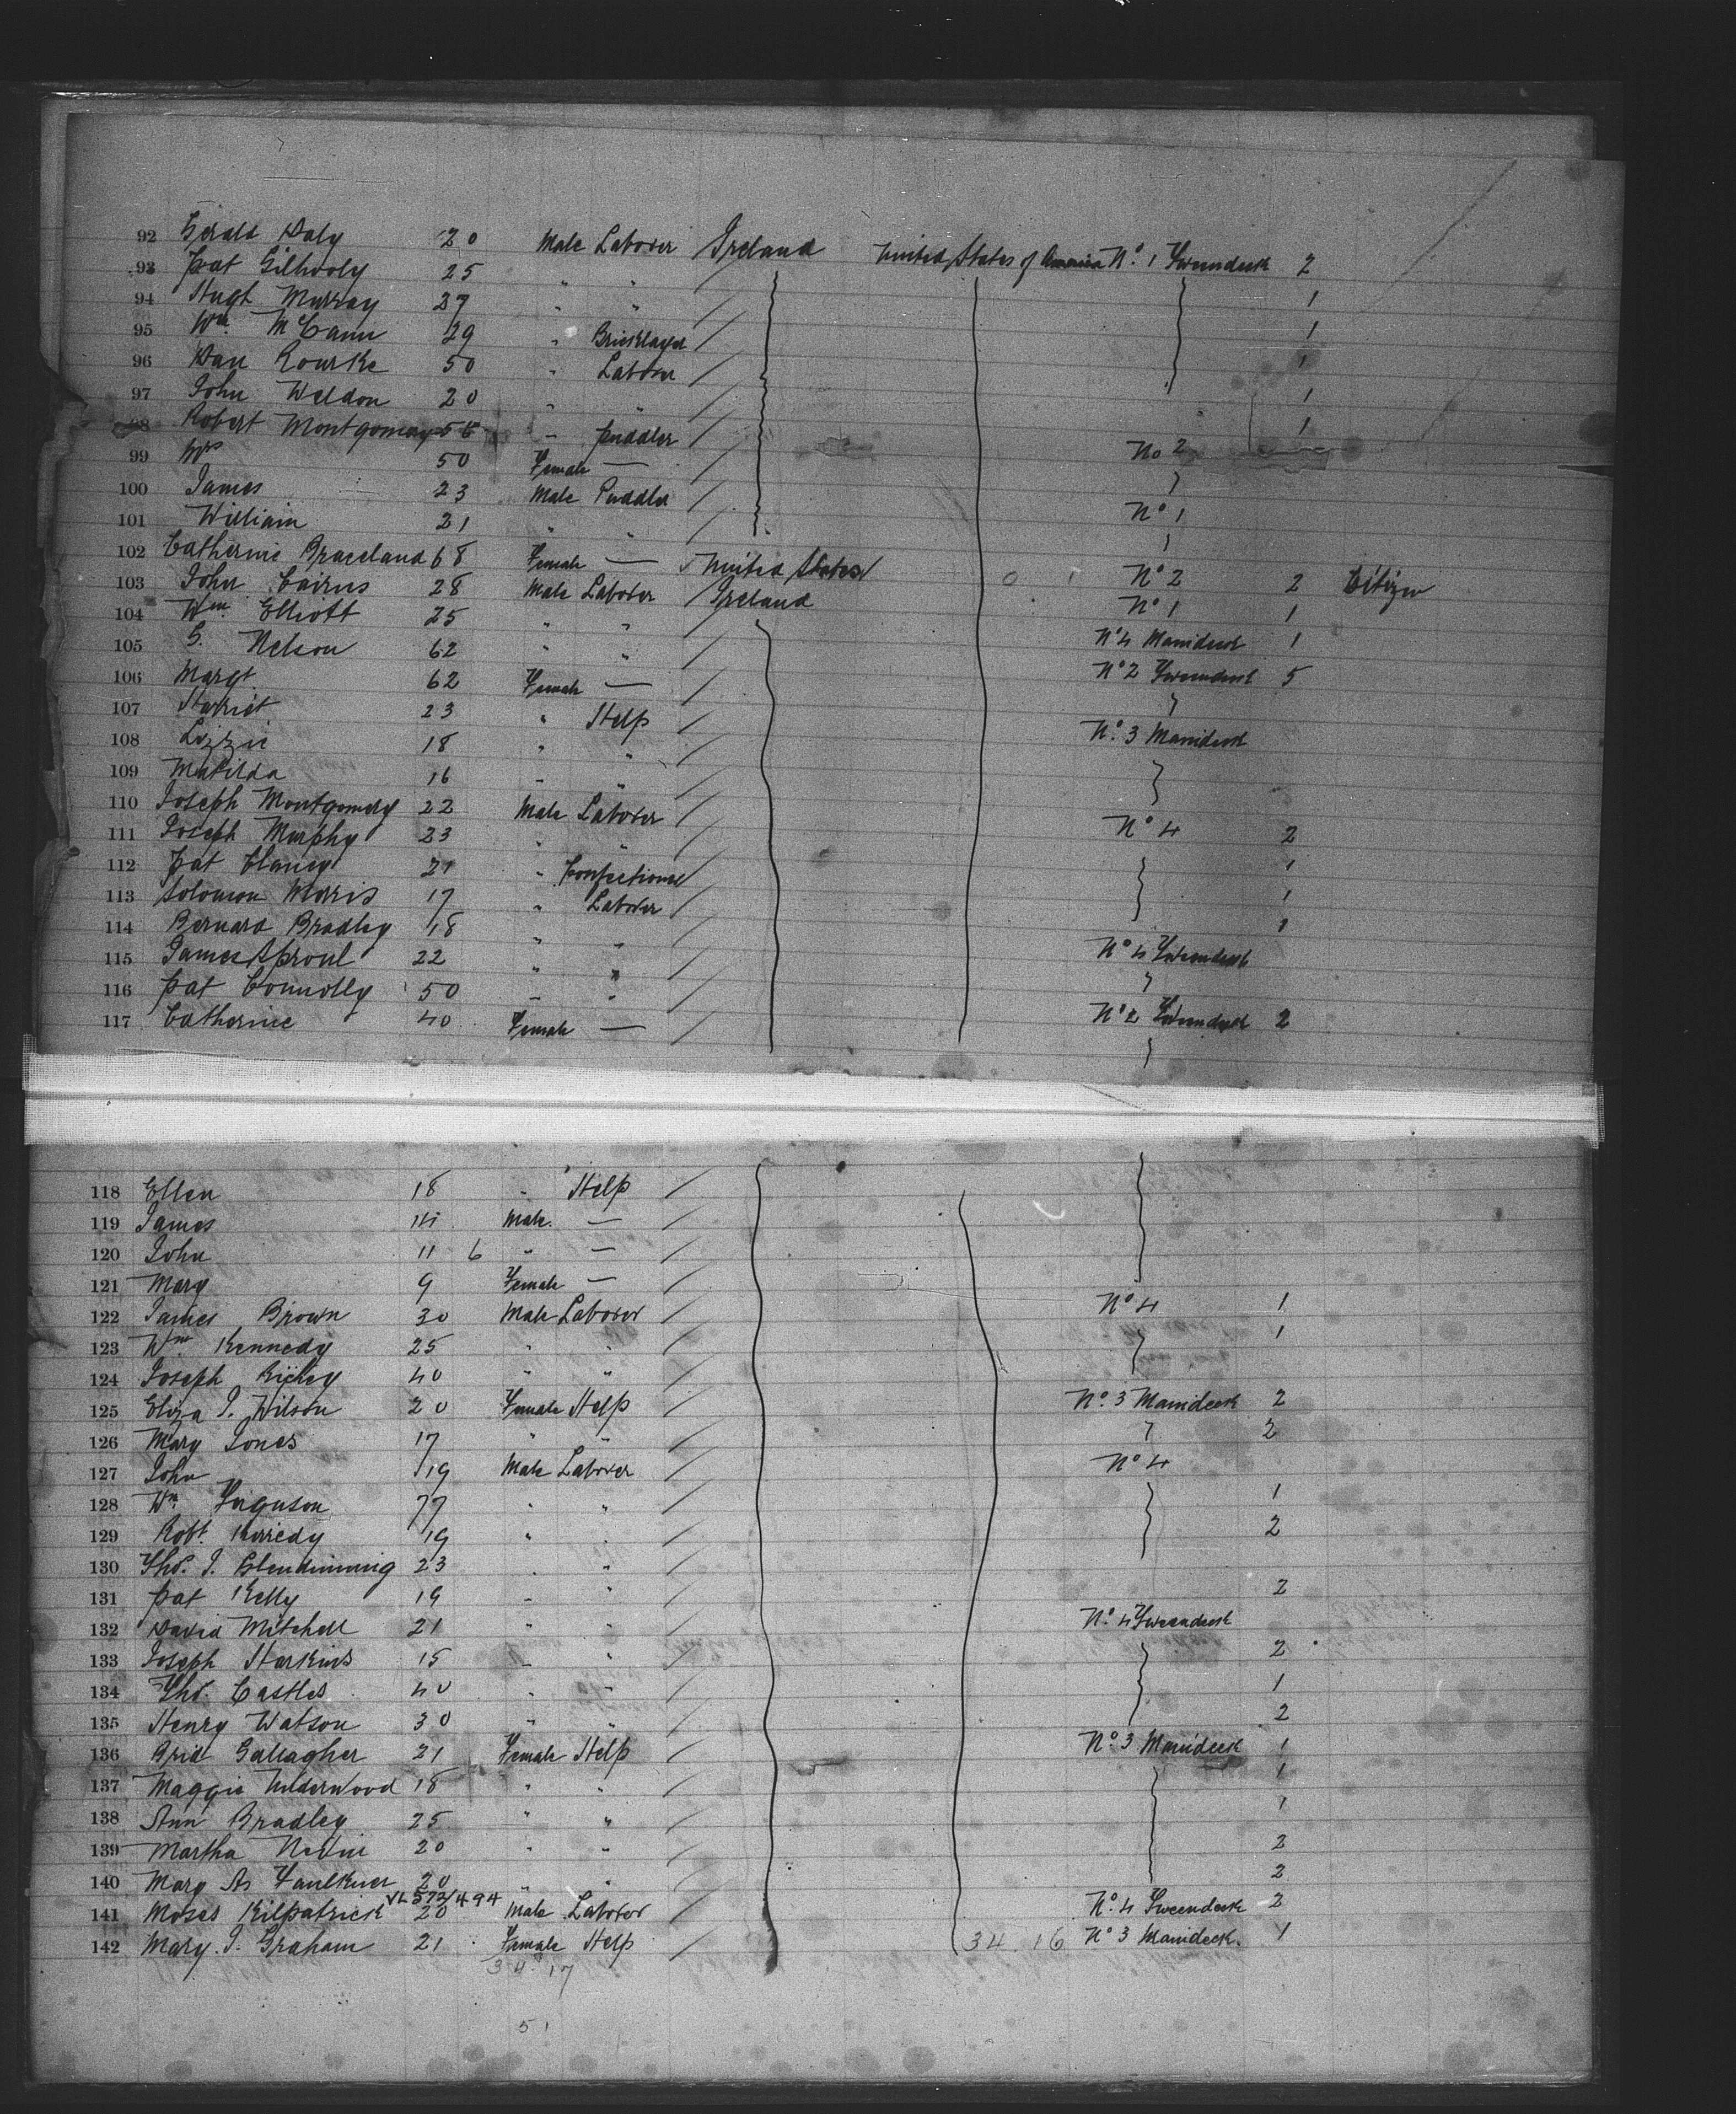 92 Gerald Daly 20 Male Laborer Ireland United States of America No. 1 Tweendeck 2
93 Pat Gilhooly 25 " " 1
94 Hugh Murray 27 " " 1
95 Wm. McCann 29 " Bricklayer 1
96 Dan Rourke 50 " Laborer 1
97 John Weldon 20 " " 1
98 Robert Montgomery 55 " Puddler No 2
99 Mrs 50 Female —
100 James 23 Male Puddler No 1
101 William 21 " "
102 Catherine Braceland 68 Female — United States No 2 2 Citizen
103 John Cairns 28 Male Laborer Ireland No 1 1
104 Wm. Elliott 25 " " No 4 Maindeck 1
105 G. Nelson 62 " " No 2 Tweendeck 5
106 Margt 62 Female —
107 Harriet 23 " Help No. 3 Maindeck
108 Lizzie 18 " "
109 Matilda 16 " "
110 Joseph Montgomery 22 Male Laborer No 4 2
111 Joseph Murphy 23 " " 1
112 Pat Clancy 21 " Confectioner 1
113 Solomon Morris 17 " Laborer 1
114 Bernard Bradley 18 " " No 4 Tweendeck
115 James Sproul 22 " "
116 Pat Connolly 50 " " No 2 Tweendeck 2
117 Catherine 40 Female —
118 Ellen 18 " Help
119 James 14 Male —
120 John 11 6 " —
121 Mary 9 Female —
122 James Brown 30 Male Laborer No 4 1
123 Wm. Kennedy 25 " " 1
124 Joseph Richey 40 " "
125 Eliza J. Wilson 20 Female Help No. 3 Maindeck 2
126 Mary Jones 17 " " 2
127 John 19 Male Laborer No 4
128 Wm. Ferguson 77 " " 1
129 Robt. 19 " " 2
130 Tho. J. Blendinning 23 " "
131 Pat Kelly 19 " " 2
132 David Mitchell 21 " " No. 4 Tweendeck
133 Joseph Harkins 15 " " 2
134 Tho. Castles 40 " " 1
135 Henry Watson 30 " " 2
136 Brid Gallagher 21 Female Help No. 3 Maindeck 1
137 Maggie Underwood 18 " " 1
138 Ann Bradley 25 " " 1
139 Martha Nevin 20 " " 2
140 Mary A. Faulkner 20 " " 2
VL 572/494
141 Moses Kilpatrick 20 Male Laborer No. 4 Tweendeck 2
142 Mary. J. Graham 21 Female Help 34.16 No 3 Maindeck. 1
34.17
51